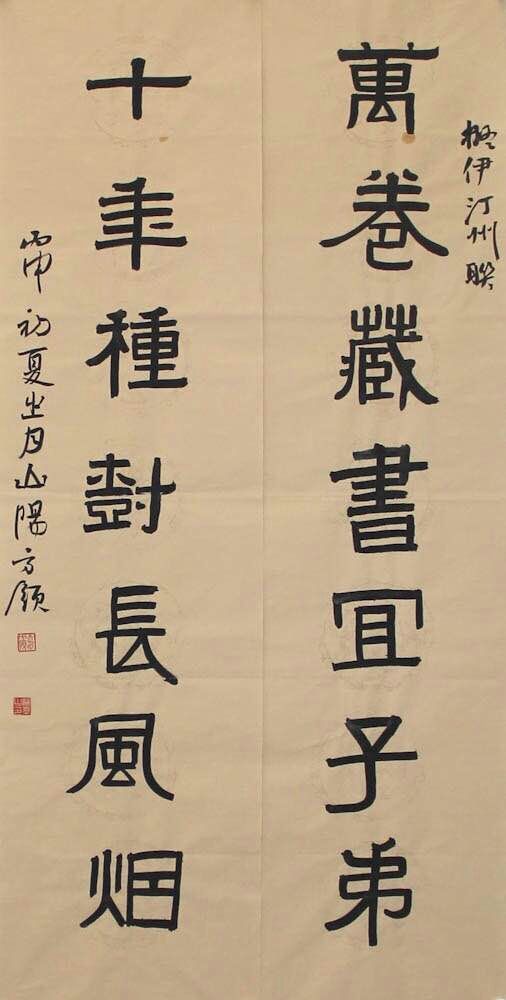 擬伊汀州聯
萬卷藏書宜子弟
十年種樹長風烟
丙申初夏之月山陽方